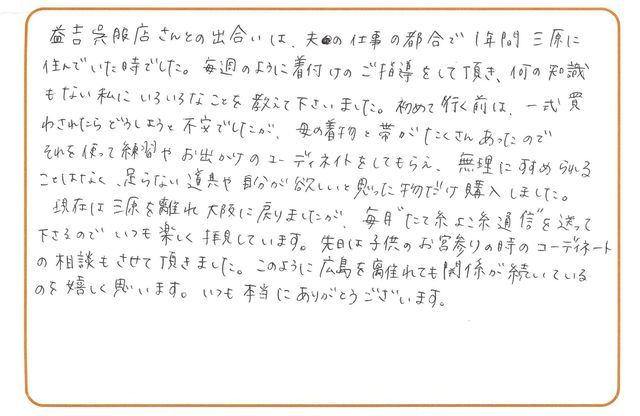 益吉呉服店さんとの出合いは、夫の仕事の都合で1年間三原に
住んでいた時でした。毎週のように着付けのご指導をして頂き、何の知識
もない私にいろいろなことを教えて下さいました。初めて行く前は、一式買
わされたらどうしようと不安でしたが、母の着物と帯がたくさんあったので
それを使って練習やお出かけのコーディネイトをしてもらえ、無理にすすめられる
ことはなく、足らない道具や自分が欲しいと思った物だけ購入しました。
現在は三原を離れ大阪に戻りましたが、毎月"たて糸よこ糸通信"を送って
下さるのでいつも楽しく拝見しています。先日は子供のお宮参りの時のコーディネート
の相談もさせて頂きました。このように広島を離れても関係が続いている
のを嬉しく思います。いつも本当にありがとうございます。